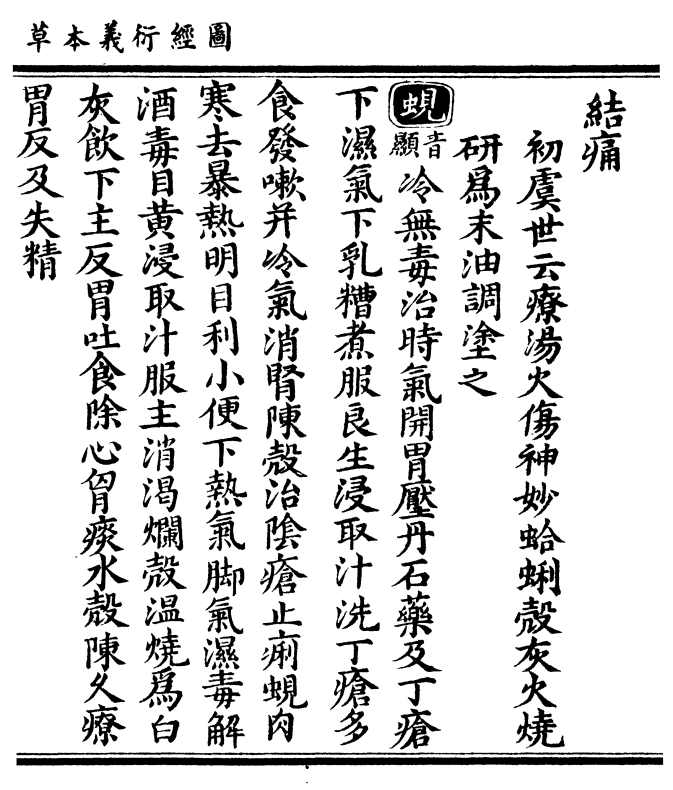 圖經衍義本草
結痛
初虞世云療湯火傷神妙蛤蜊殼灰火燒
研爲末油調塗之
蜆音顯冷無毒治時氣開胃壓丹石藥及丁瘡
下濕氣下乳糟煮服良生浸取汁洗丁瘡多
食發嗽并冷氣消腎陳殼治陰瘡止痢蜆肉
寒去暴熱明目利小便下熱氣脚氣濕毒解
酒毒目黄浸取汁服主消渴爛殼温燒爲白
灰飲下主反胃吐食除心胷痰水殼陳久療
胃反及失精